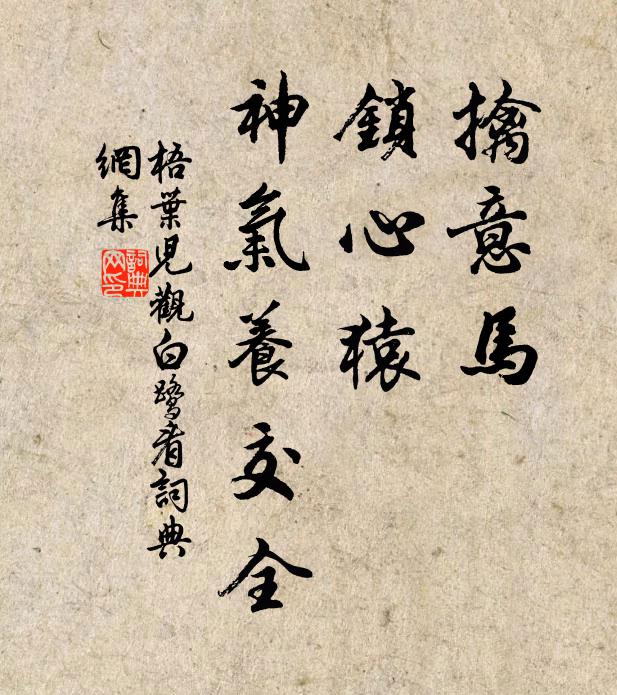 擒意馬
鎖心猿
神氣養交全
梧葉児觀白鷺看詞典
網集
詞典
网印